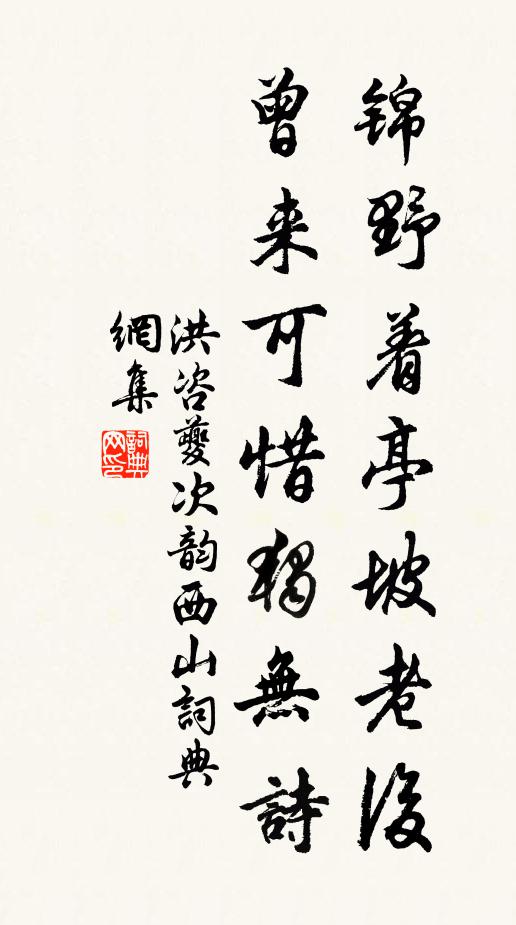 锦野着亭坡老后
曾来可惜獨無詩
洪咨夔次韵西山詞典
網集
詞典网印